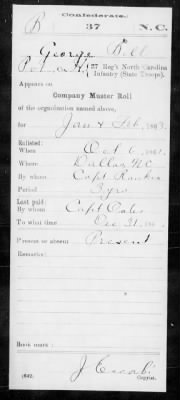 Confederate.
R 37 N.C.
George Rill
Pvt, Co. H, 37 Reg't North Carolina
Infantry (State Troops).
Appears on
Company Muster Roll
of the organization named above,
for Jan & Feb, 1863.
Enlisted:
When Oct 6, 1861
Where Dallas NC
By whom Capt Rankin
Period 3 yrs
Last paid:
By whom Capt
To what time Dec 31, 186
Present or absent Present
Remarks:
Book mark:
(642)
Copyist.